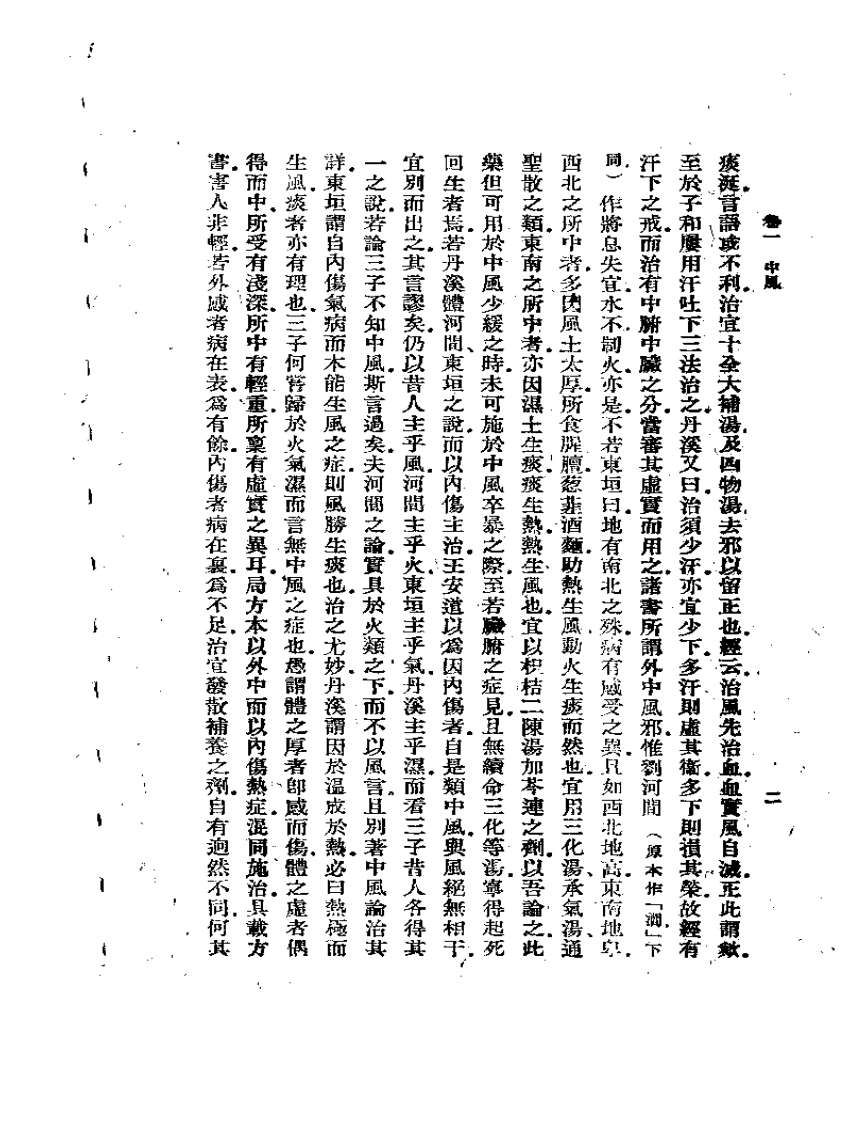 卷一 中風 二
痰涎言語或不利治宜十全大補湯及四物湯去邪以留正也經云治風先治血血實風自滅正此謂歟。
至於子和屢用汗吐下三法治之丹溪又曰治須少汗亦宜少下多汗則虛其衞多下則損其榮故經有
汗下之戒而治有中腑中臟之分當審其虛實而用之諸書所謂外中風邪惟劉河間（原本作「澗」下
同）作將息失宜水不制火亦是不若東垣曰地有南北之殊病有感受之異且如西北地高東南地卑
西北之所中者多因風土太厚所食腥膻葱韮酒麵助熱生風動火生痰而然也宜用三化湯、承氣湯、通
聖散之類東南之所中者亦因濕土生痰痰生熱熱生風也宜以枳桔二陳湯加芩連之劑以吾論之此
藥但可用於中風少緩之時未可施於中風卒暴之際至若臟腑之症見且無續命三化等湯寧得起死
回生者焉若丹溪體河間、東垣之說而以內傷主治王安道以為因內傷者自是類中風與風絕無相干
宜別而出之其言謬矣仍以昔人主乎風河間主乎火東垣主乎氣丹溪主乎濕而看三子昔人各得其
一之說若論三子不知中風斯言過矣夫河間之論實具於火類之下而不以風言且別著中風論治其
詳東垣謂自內傷氣病而木能生風之症則風勝生痰也治之尤妙丹溪謂因於濕成於熱必曰熱極而
生風痰者亦有理也三子何嘗歸於火氣濕而言無中風之症也愚謂體之厚者卽感而傷體之虛者偶
得而中所受有淺深所中有輕重所稟有虛實之異耳局方本以外中而以內傷熱症混同施治具載方
書害人非輕若外感者病在表為有餘內傷者病在裏為不足治宜發散補養之劑自有迥然不同何其